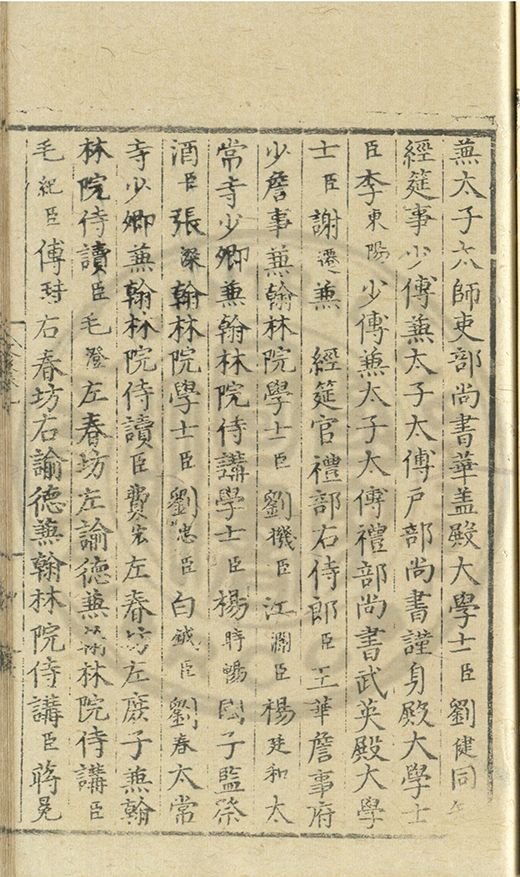 兼太子太師吏部尚書華盖殿大學士臣劉健同知
經筵事少傅兼太子太傅戶部尚書謹身殿大學士
臣李東陽少傅兼太子太傅禮部尚書武英殿大學
士臣謝遷兼經筵官禮部右侍郎臣王華詹事府
少詹事兼翰林院學士臣劉機臣江瀾臣楊廷和太
常寺少卿兼翰林院侍講學士臣楊時暢國子監祭
酒臣張澯翰林院學士臣劉忠臣白鉞臣劉春太常
寺少卿兼翰林院侍讀臣費宏左春坊左庶子兼翰
林院侍讀臣毛澄左春坊左諭德兼翰林院侍講臣
毛紀臣傅珪右春坊右諭德兼翰林院侍講臣蔣冕